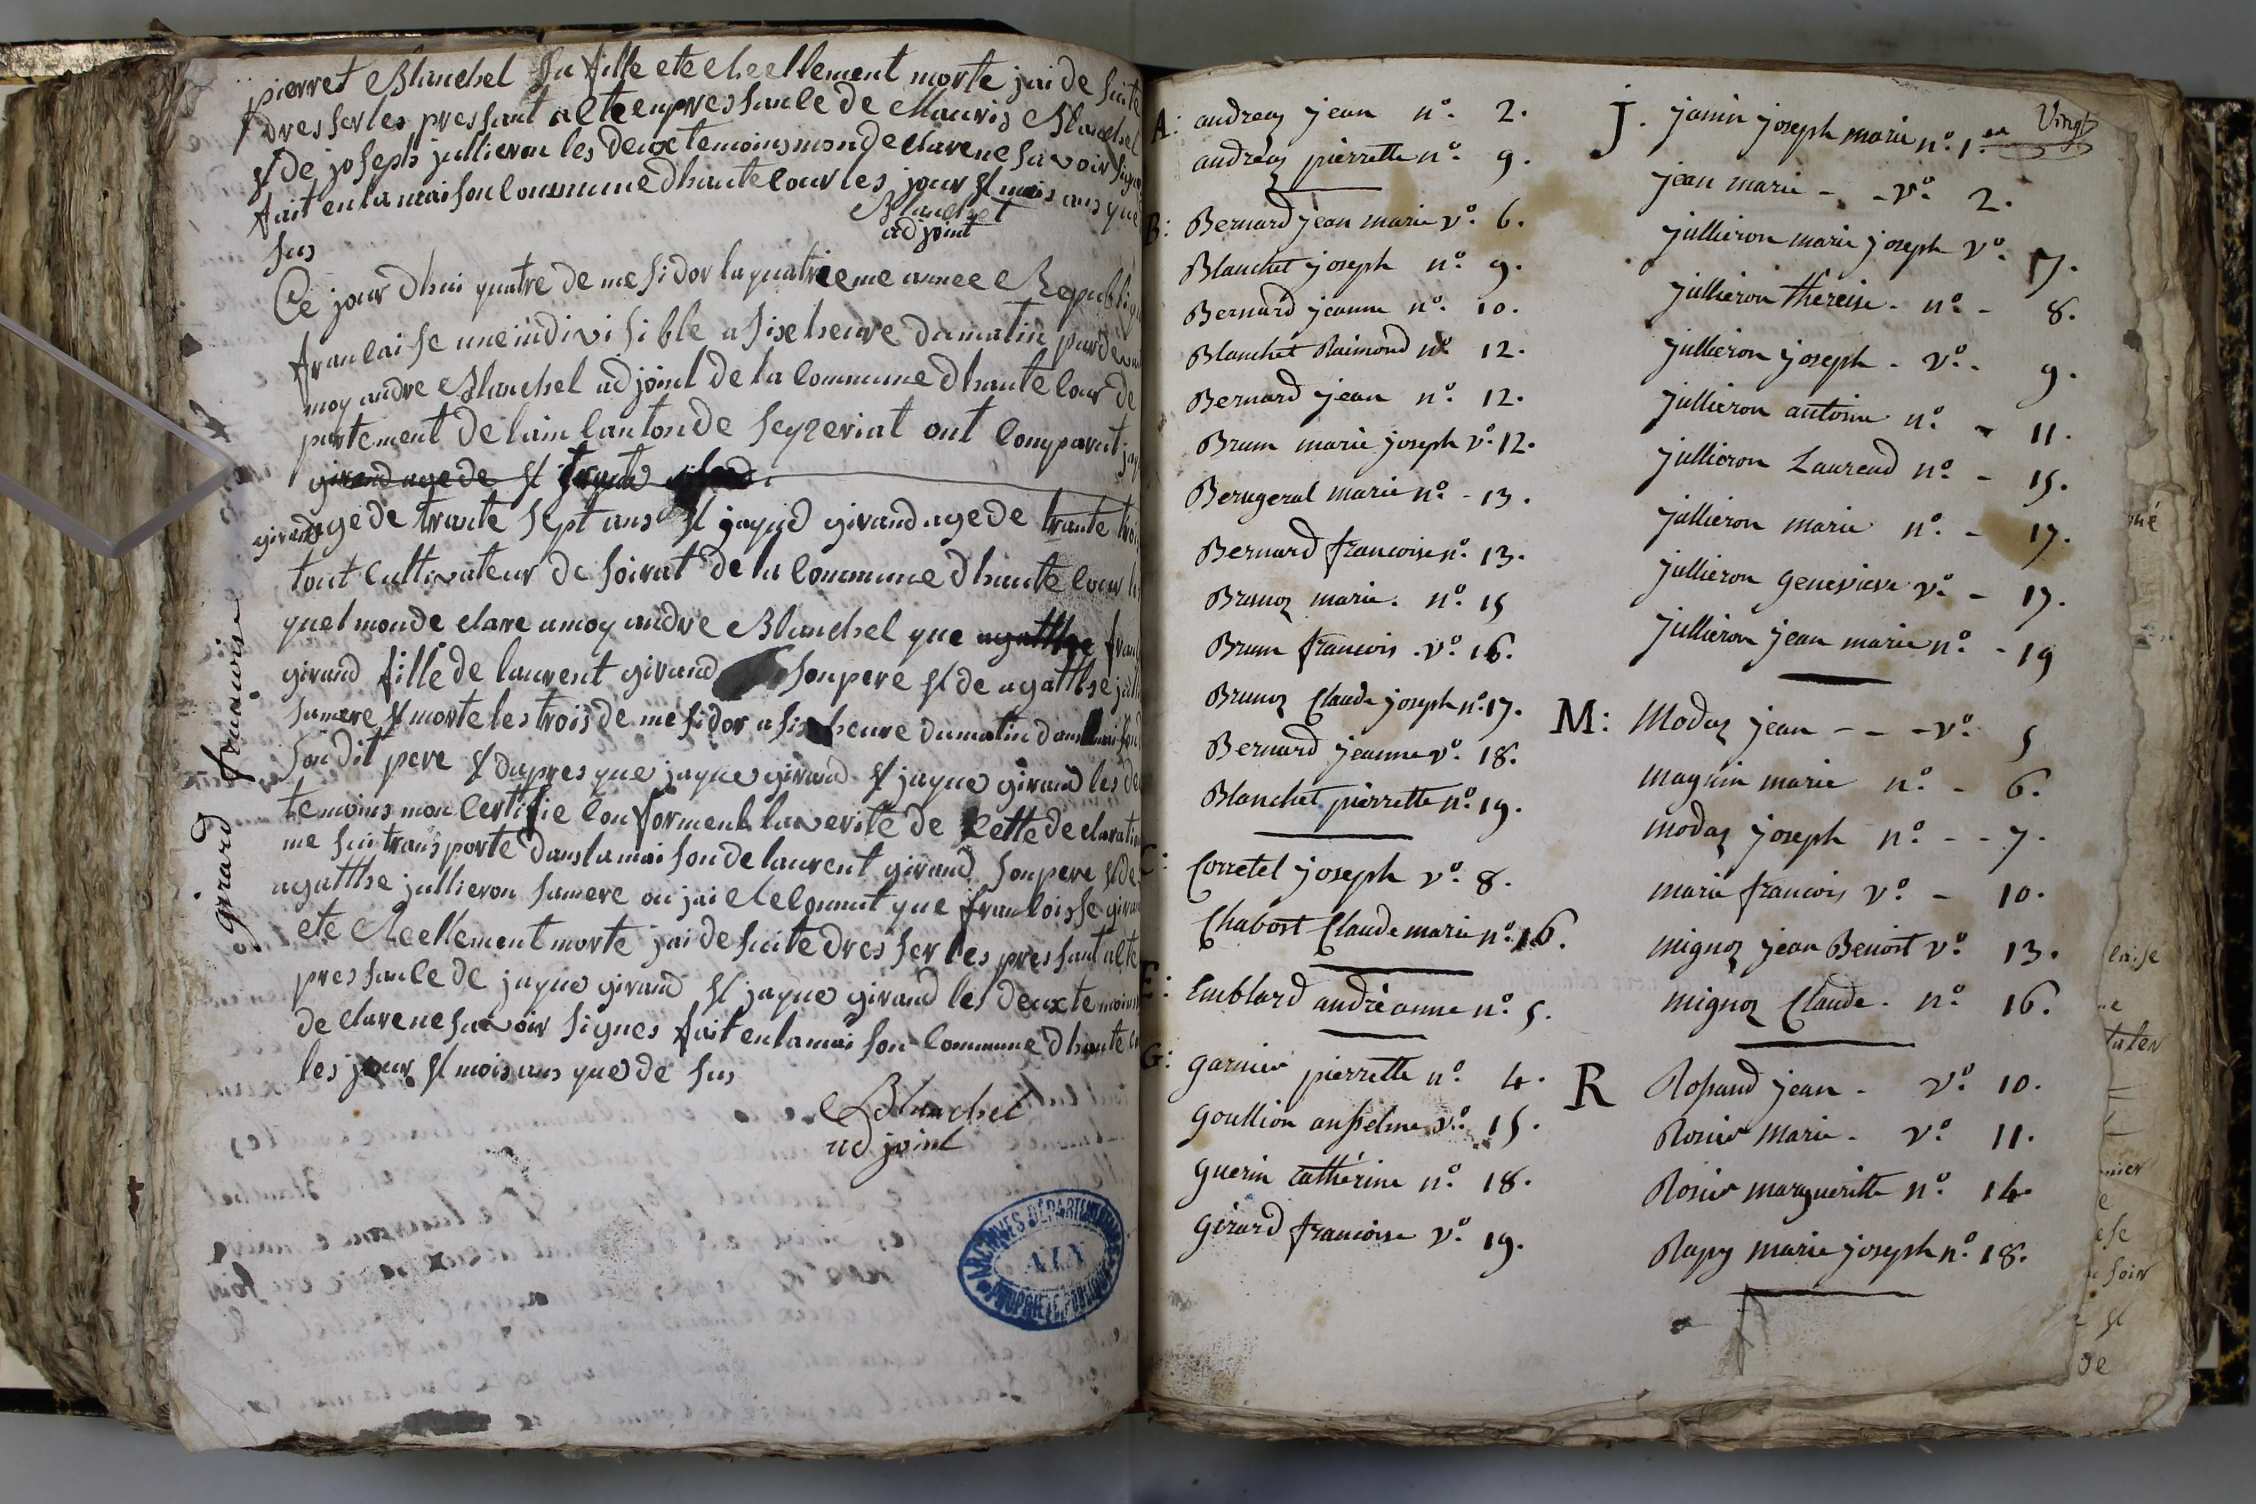 pierret Blanchel sa fille ete Reellement morte jai de suite
dresser les pressant acte en pressance de Mauris Blanchel
et de joseph jullieron les deux temoins mon declare ne savoir signe
fait en la maison commune dhautecour les jour et mois ans que
sus
Blanchet
adjoint
Ce jour dhui quatre de mesidor la quatrieme annee Republiq
francaise une indivisible a sixe heure du matin par devan
moy andre Blanchel adjoint de la commune dhautecour de
partement de lain canton de seyzeriat ont comparut jaq
girand age de et trante
girand age de trante sept ans et jaque girand age de trante trois
tout cultivateur de soirat de la commune dhautecour le
quel mon declare a moy andre Blanchel que agatthe fran
girand fille de laurent girand son pere et de agatthe julli
sa mere et morte les trois de mesidor a six heure du matin dans maison
son dit pere et dapres que jaque girand et jaque girand les de
temoins mon certifie conforment la verite de cette declaration
me sui transporte dans la maison de laurent girand son pere et de
agatthe jullieron sa mere ou jai Reconnut que francoisse giran
ete Reellement morte jai de suite dresser les pressant acte
pressance de jaque girand et jaque girand les deux temoins
declare ne savoir signes fait en la maison commune dhaute co
les jour et mois ans que de sus
Blanchel
adjoint
girard francoise
ARCHIVES DÉPARTEMENTALES
AIN
PROPRIÉTÉ PUBLIQUE
Vingt
A: andreaz jean n.º 2.
andréaz pierrette n.º 9.
B: Bernard jean marie v.º 6.
Blanchet joseph n.º 9.
Bernard jeanne n.º 10.
Blanchet Raimond nº 12.
Bernard jean n.º 12.
Brum marie joseph v.º 12.
Berugeral marie n.º - 13.
Bernard francoise n.º 13.
Brunoz marie. n.º 15
Brum francois . v.º 16.
Brunoz Claude joseph n.º 17.
Bernard jeanne v.º 18.
Blanchet pierrette n.º 19.
C: Corretel joseph v.º 8.
Chabost Claude marie n.º 16.
E: Emblard andréanne n.º 5.
G: garnier pierrette n.º 4.
goullion anselme v.º 15.
guerin catthérine n.º 18.
girard francoise v.º 19.
J. janin joseph marie n.º 1.er
jean marie - - v.º 2.
jullieron marie joseph v.º 7.
jullieron thereise. n.º - 8.
jullieron joseph - v.º - 9.
jullieron antoine n.º - 11.
jullieron Laurend n.º - 15.
jullieron marie n.º - 17.
jullieron geneviève v.º - 17.
jullieron jean marie n.º - 19
M: Modaz jean - - - v.º 5
magnin marie n.º - 6.
modaz joseph n.º - - 7.
marie francois v.º - 10.
mignoz jean Benoit v.º 13.
mignoz Claude. n.º 16.
R Ropand jean - v.º 10.
Rosier Marie - v.º 11.
Rosier margueritte n.º 14.
Rapy marie joseph n.º 18.